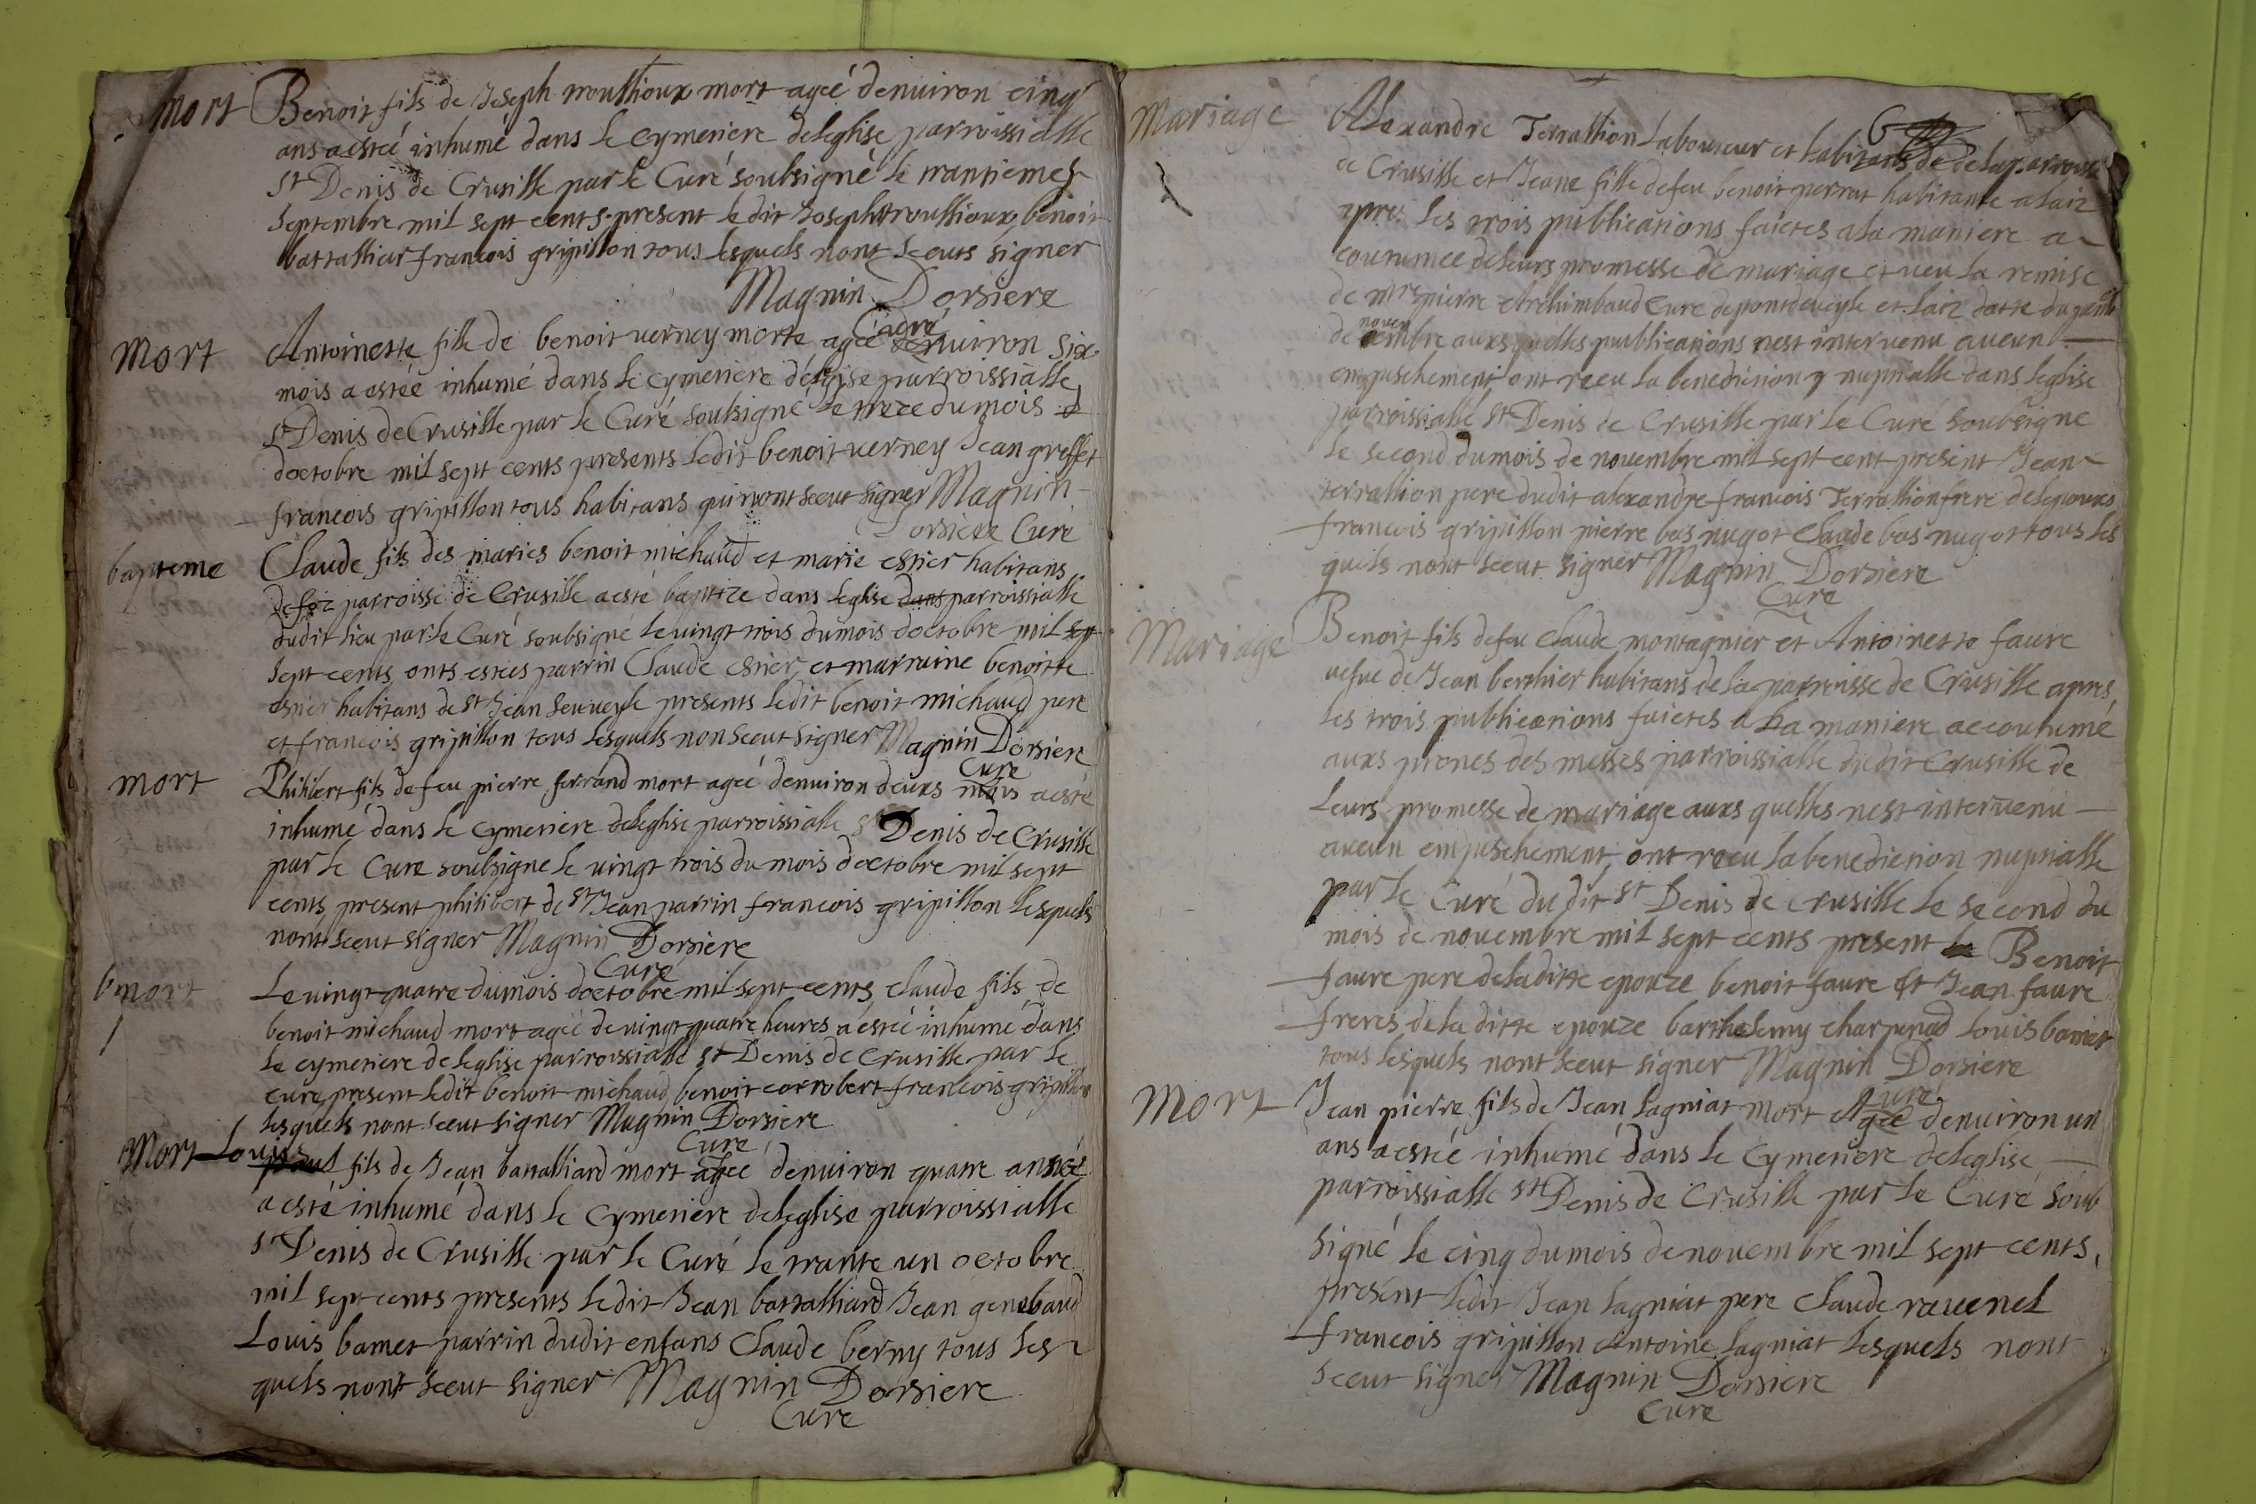 mort Benoit fils de Joseph troullioux mort ageé denuiron cinq
ans a estéé inhumé dans le Cymetiere deleglise parroissialle
st Denis de Crusille par le Curé soubsigné le trantiemes
Septembre mil sept cents present le dit Joseph troullioux benoit
battallier francois gripillon tous lesquels nont sceuts signer
Magnin Dorsiere
Curé
mort Antoinette fille de benoit verney morte ageé denuiron six
mois a estéé inhumé dans le Cymetiere deleglise parroissialle
st Denis de Crusille par le Curé soubsigné le treze du mois d
doctobre mil sept cents presents ledit benoit verney Jean greffet
francois gripillon tous habitans qui nont sceut signer Magnin
orsiere Curé
bapteme Claude fils des maries benoit michaud et marie estier habitans
parroisse de Crusille a esté baptize dans leglise dans parroissialle
dudit lieu par le Curé soubsigné le vingt trois du mois doctobre mil sept
sept cents onts estees parrin Claude estier et marraine benoitte
estier habitans de st Jean Seuveyle presents ledit benoit michaud pere
et francois gripillon tous lesquels non sceut signer Magnin Dorsiere
Cure
mort Philibert fils de feu pierre ferrand mort ageé denuiron deuxs mois a esté
inhumé dans le Cymetiere deleglise parroissialle st Denis de Crusille
par le Cure soubsigne le vingt trois du mois doctobre mil sept
cents present philibert de st Jean parrin francois gripillon lesquels
nont sceut signer Magnin Dorsiere
Cure
b mort Le vingt quatre du mois doctobre mil sept cents claude fils de
benoit michaud mort ageé de vingt quatre heures a estéé inhumé dans
le cymetiere deleglise parroissialle st Denis de Crusille par le
cure present ledit benoit michaud benoit corrobert francois gripillon
lesquels nont sceut signer Magnin Dorsiere
Cure
Mort Louis paul fils de Jean battalliard mort ageé denuiron quatre anneé
a esté inhumé dans le Cymetiere deleglise parroissialle
st Denis de Crusille par le Curé le trante un octobre
mil sept cents presents ledit Jean battalliard Jean genebaud
Louis bamet parrin dudit enfans Claude berny tous les
quels nont sceut signer Magnin Dorsiere
Cure
6
Mariage Alexandre Terrallion Laboureur et habitans de delaparroisse
de Crusille et Jeane fille defeu benoit perrat habitante a laiz
apres les trois publications faictes ala maniere a
coutumee deleurs promesse de mariage et veu la remise
de mre pierre Archimbaud Cure depontdeveyle et laiz datte du
nouen
de embre auxs quelles publications nest intervenu aucun
empeschement ont receu la benediction nuptialle dans leglise
parroissialle st Denis de Crusille par le Curé soubsigne
le second du mois de novembre mil sept cent present Jean
terrallion pere dudit alexandre francois Terrallion frere delepouxs
francois gripillon pierre bas nugot Claude bas nugot tous les
quels nont sceut signer Magnin Dorsiere
Cure
Mariage Benoit fils defeu Claude montagnier et Antoinette faure
vefve de Jean berthier habitans de la parroisse de Crusille apres
les trois publications faictes a la maniere accoutumé
auxs prones des messes parroissialle dudit Crusille de
leurs promesse de mariage auxs quelles nest intervenu
aucun empeschement, ont receu la benediction nuptialle
par le Curé du dit st Denis de Crusille le second du
mois de novembre mil sept cents present Benoit
faure pere deladitte epouze benoit faure et Jean faure
freres dela ditte epouze barthelemy charpenad Louis bamet
tous lesquels nont sceut signer Magnin Dorsiere
Curé
Mort Jean pierre fils de Jean Lagniat mort ageé denuiron un
ans a estéé inhumé dans le Cymetiere deleglise
parroissialle st Denis de Crusille par le Curé soub
signé le cinq du mois de novembre mil sept cents,
present ledit Jean lagniat pere claude ravenel
francois gripillon Antoine lagniat lesquels nont
sceut signer Magnin Dorsiere
Cure